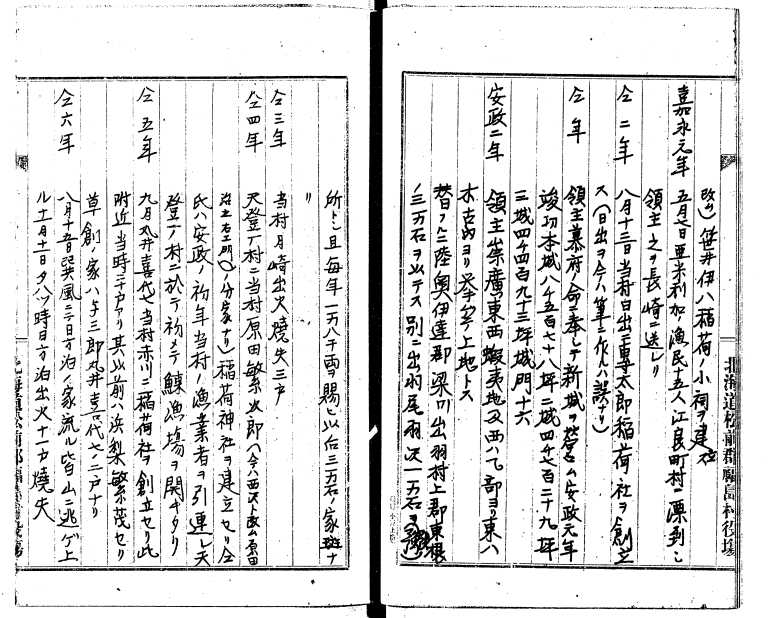 改ム)笹井伊八稲荷ノ小祠ヲ建立
嘉永元年 五月七日亜米利加漁民十五人江良町村ニ漂到ス
領主之ヲ長崎ニ送レリ
仝二年 八月十三日当村白出ニ専太郎稲荷ノ社ヲ創立
ス(日出ヲ今ハ筆ニ作ルハ誤ナリ)
仝年 領主幕府ノ命ニ奉シテ新城ヲ営ム安政元年
竣功本城八千五百七十八坪二城四千七百二十九坪
三城四千四百九十三坪城門十六
安政二年 領主崇廣東西蝦夷地及西ハ乙部ヨリ東ハ
木古内ヨリ挙ケテ上地トス
替フルニ陸奥伊達郡梁川出羽村上郡東根
ノ三万石ヲ以テス別ニ出羽尾羽沢一万石ヲ
所トシ且毎年一万八千両ヲ賜ヒ以后三万石ノ家班ナ
リ
仝三年 当村月崎出火焼失三戸
仝四年 天登ノ村ニ当村原田繁次郎(今ハ西沢ト改ム原田
治左エ門ノ分家ナリ)稲荷神社ヲ建立セリ仝
氏ハ安政ノ初年当村ノ漁業者ヲ引連レ天
登ノ村ニ於テ初メテ鰊漁場ヲ開キタリ
仝五年 九月丸井喜代七当村赤川ニ稲荷社ヲ創立セリ此
附近当時三千戸アリ其以前ハ浜梨繁茂セリ
草創ノ家ハ与三郎丸井喜代七二戸ナリ
仝六年 八月十五日巽風ニテ日方泊ノ家流ル皆山ニ逃ゲ上
ル十一月十一日夕八ツ時日方泊出火十一戸焼失
北海道松前郡福島村役場
北海道松前郡福島村役場